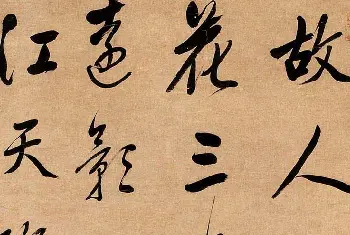 故人
花三
遠影
江天